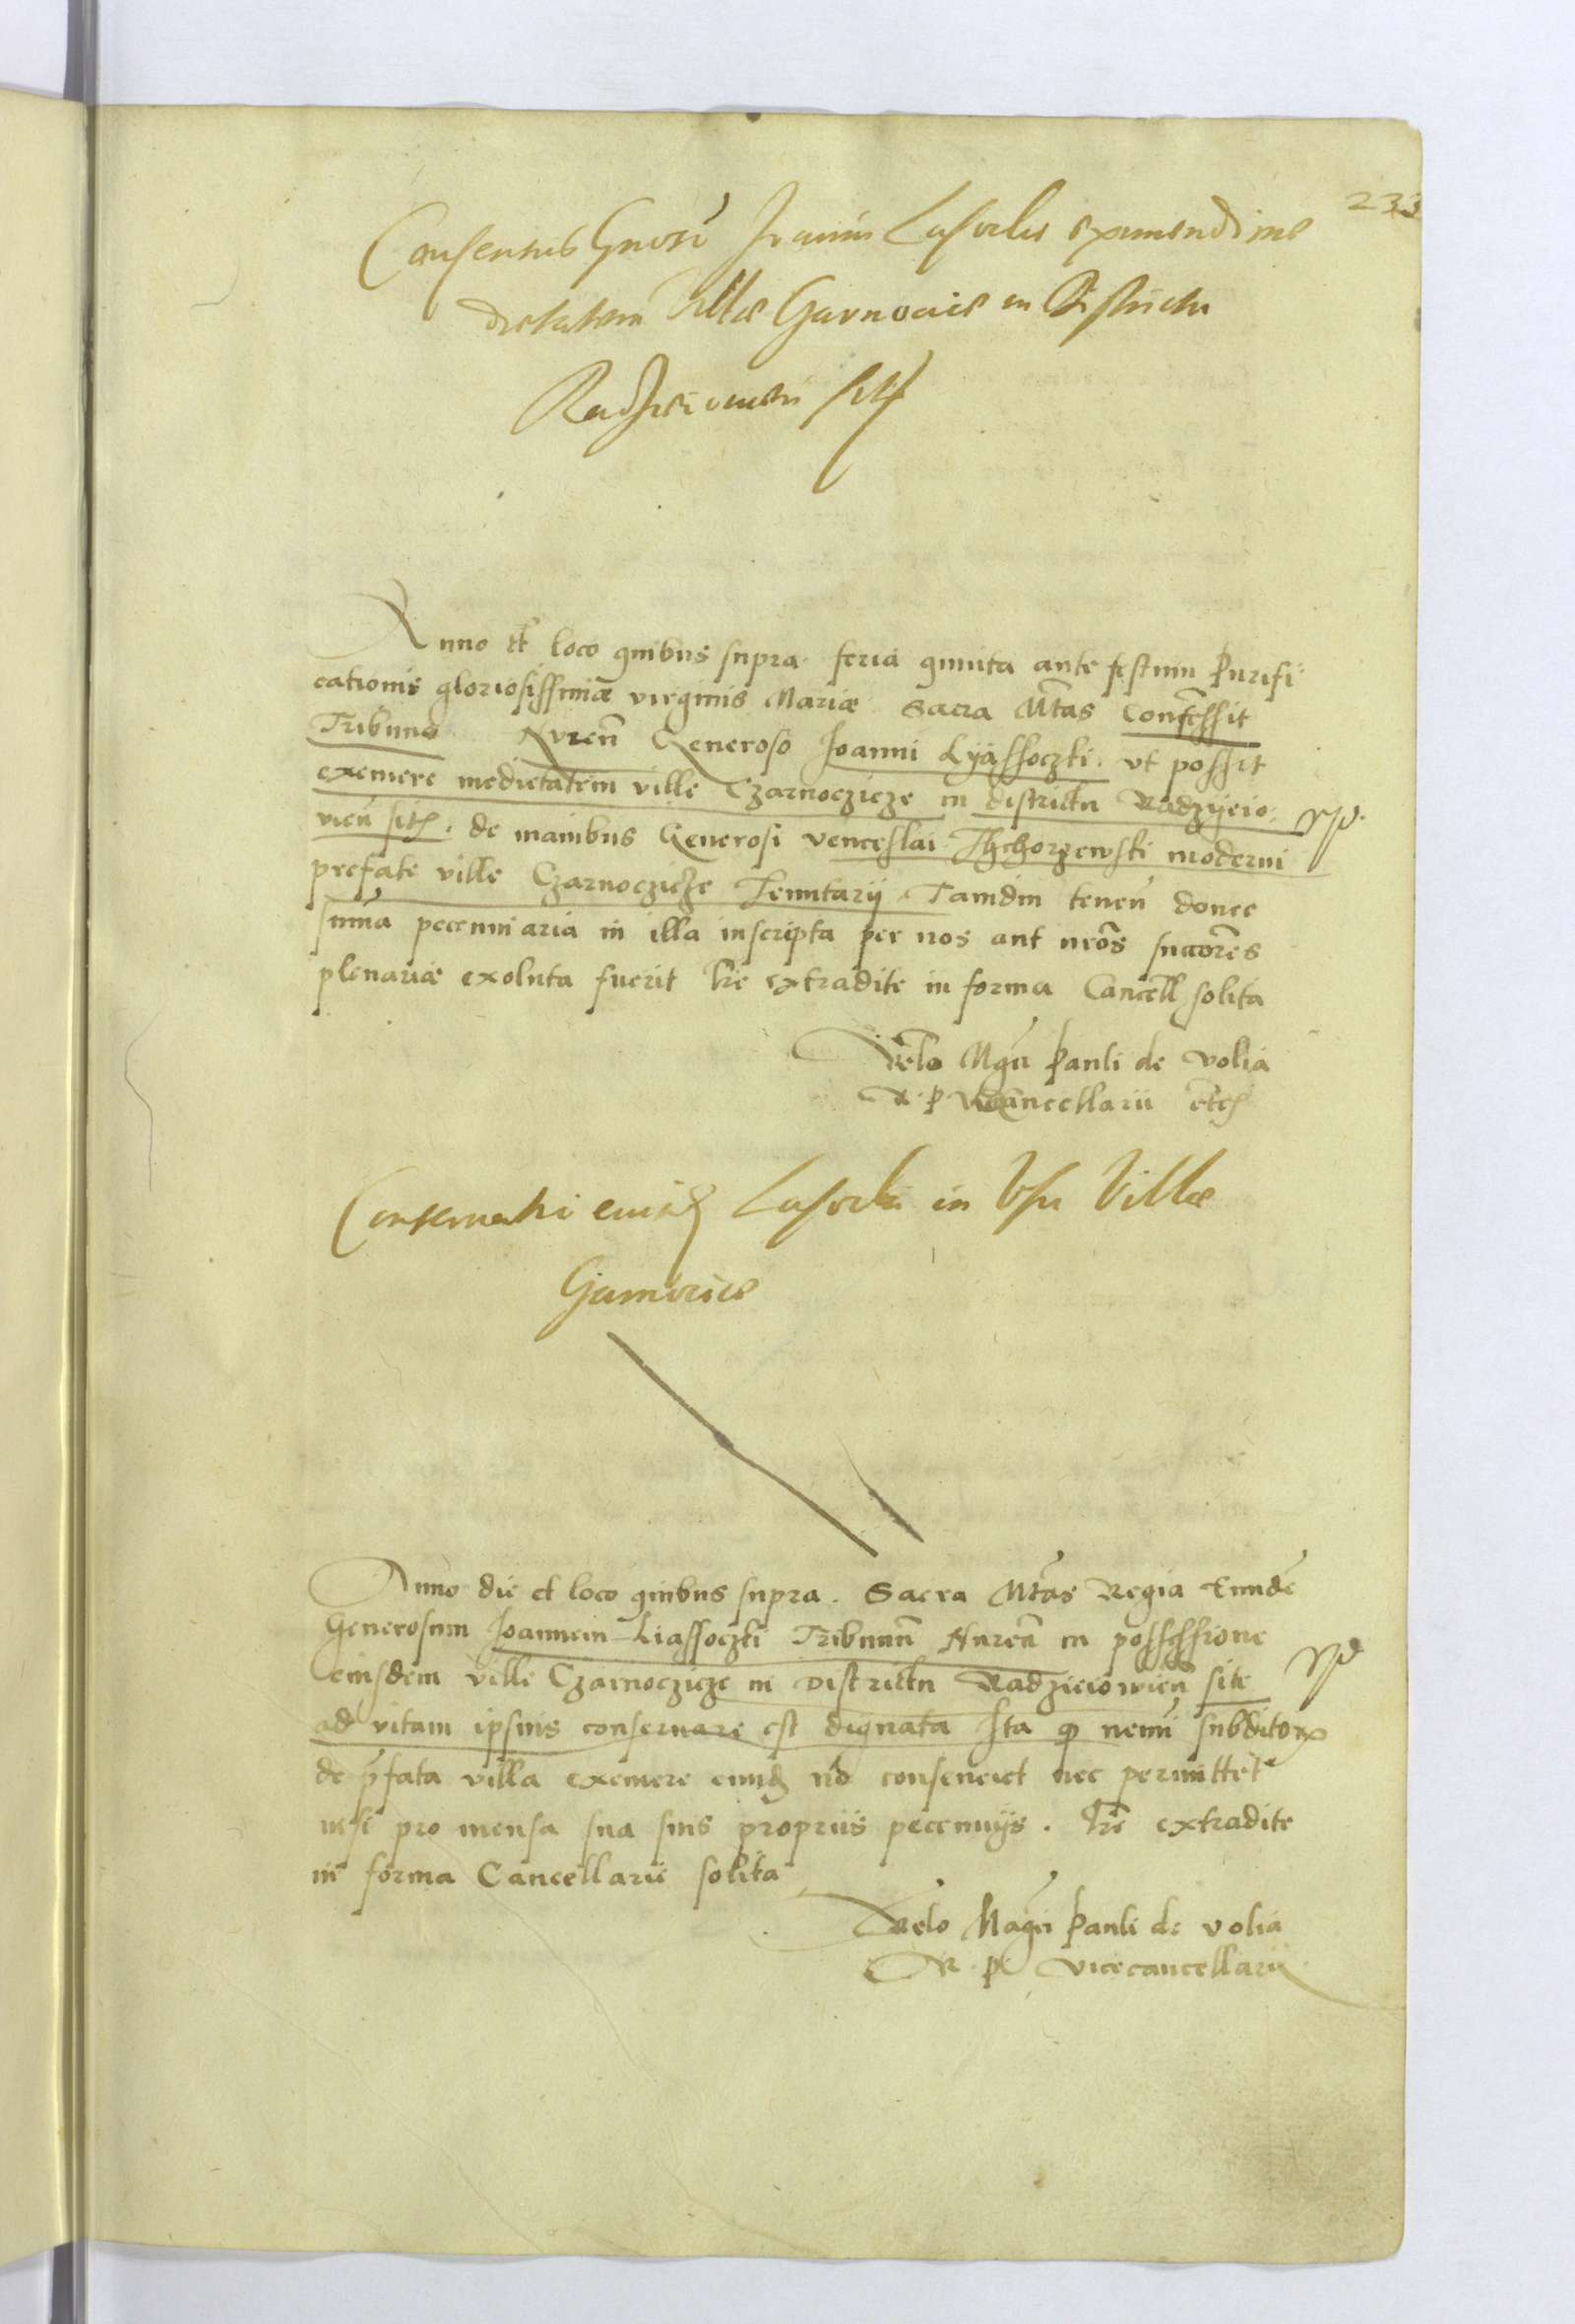 233
Consensus Gnosi Joanni Lasocki eximendi me
dietatem Villae Czarnocice in Districtu
Radzieiouien sitt
Anno et loco quibus supra feria quinta ante festum purifi
cationis gloriosissimæ virginis Mariæ Sacra Mtas Consessit
Tribuno Nuren Generoso Joanni Lyassoczki ut possit
exemere medietatem ville Czarnoczicze in districtu Radzyeio
vien site de manibus Generosi venceslai Thchorzewski moderni
prefate ville Czarnoczicze Tenutarij Tamdiu tenen donec
suma pecunniaria in illa inscripta per nos aut nros suctores
plenariæ exoluta fuerit lre extradite in forma Cancell solita
Relo Mgci pauli de volia
R. P. Vicecancellarii etc
Conseruatio eiusd Lasocki in Usu Villae
Czarnocice
Anno die et loco quibus supra. Sacra Mtas Regia Eunde
Generosum Joannem Liassoczki Tribunu Nuren in possessione
eiusdem ville Czarnoczicze in Districtu Radzieiowien site
ad vitam ipsius conseruare est dignata Ita q nemi subditor
de pfata villa exemere eund no conseneiet nec permittet
nisi pro mensa sua suis propriis pecunnijs. lre extradite
in forma Cancellarie solita
Relo Magci pauli de volia
R. P. vicecancellarii